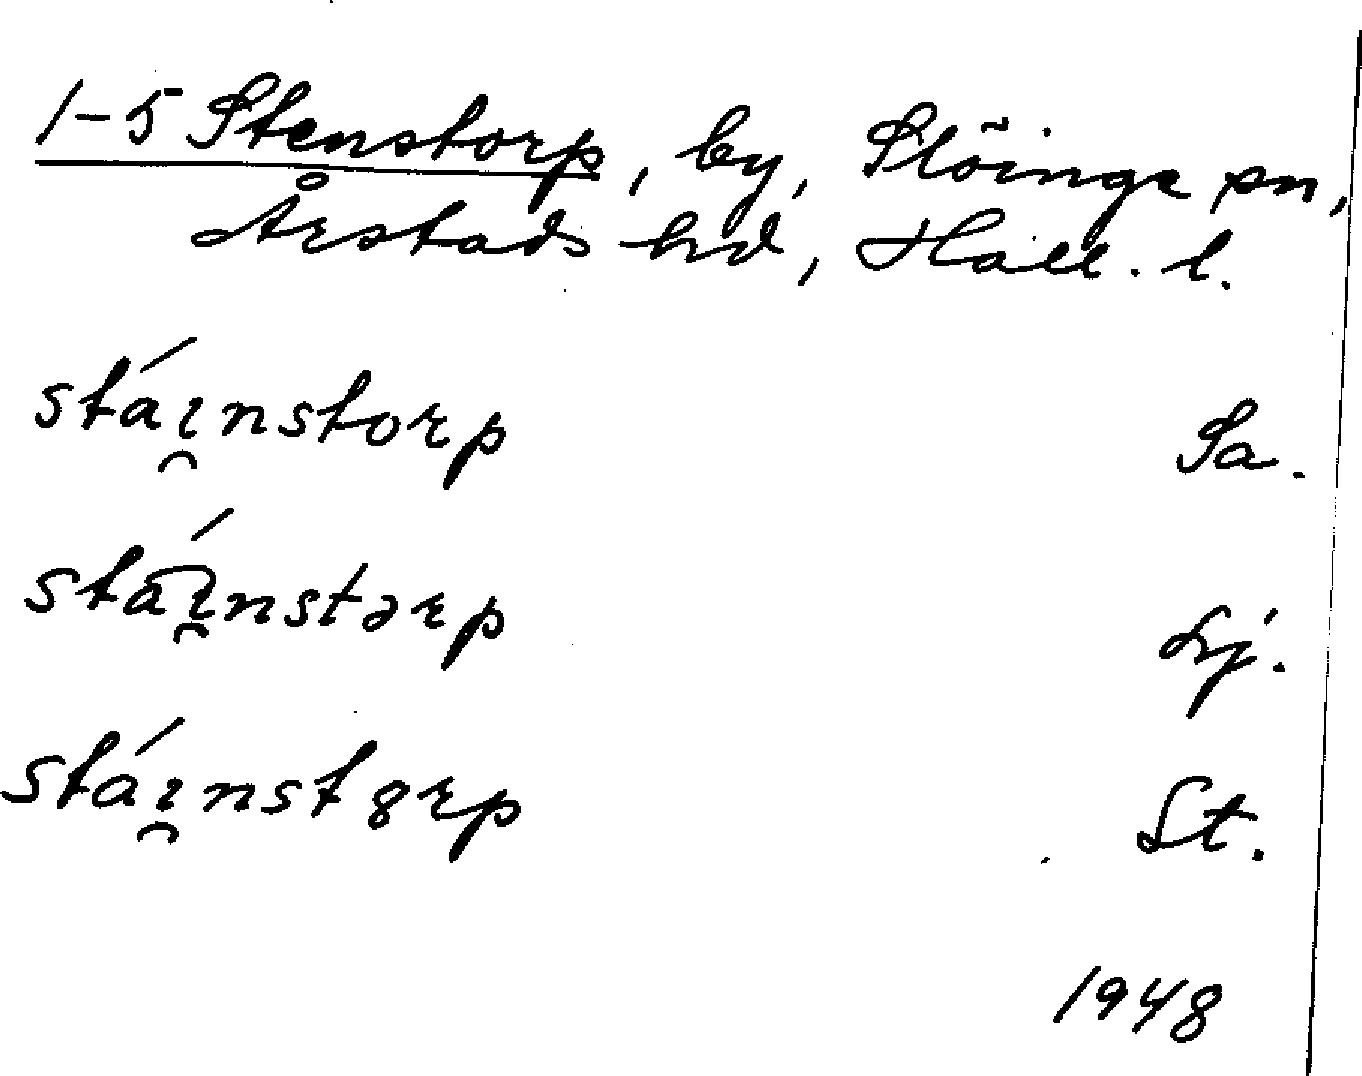 1-5 Stenstorp, by, Slöinge sn,
Årstads hd, Hall. l.
stáı̯nstorp Sa.
stáı̯nstərp Lj.
stáı̯nst8rp St.
1948